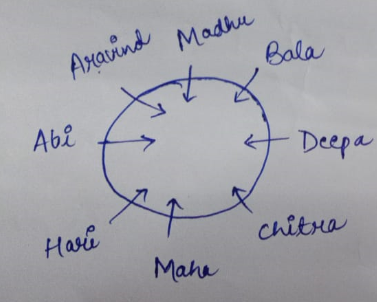 Aravind
Madhu
Bala
Abi
Deepa
Hari
Chitra
Maha